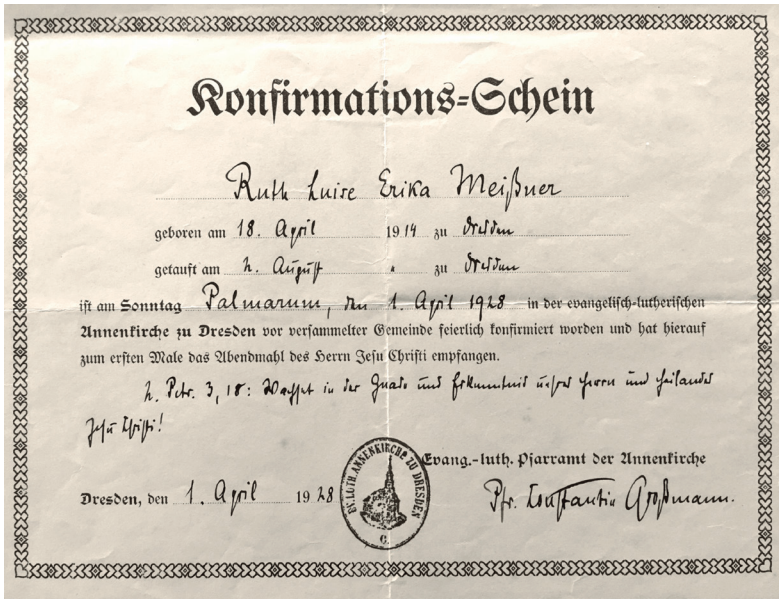 Konfirmations-Schein
Ruth Luise Erika Meißner
geboren am 18. April 1914 zu Dresden
getauft am 2. August " zu Dresden
ist am Sonntag Palmarum, den 1. April 1928 in der evangelisch-lutherischen
Annenkirche zu Dresden vor versammelter Gemeinde feierlich konfirmiert worden und hat hierauf
zum ersten Male das Abendmahl des Herrn Jesu Christi empfangen.
2. Petr. 3, 18: Wachset in der Gnade und Erkenntnis unsres Herrn und Heilandes
Jesu Christi!
Evang.-luth. Pfarramt der Annenkirche
Dresden, den 1. April 1928
EV. LUTH. ANNENKIRCHE ZU DRESDEN
C.
Pfr. Konstantin Großmann.